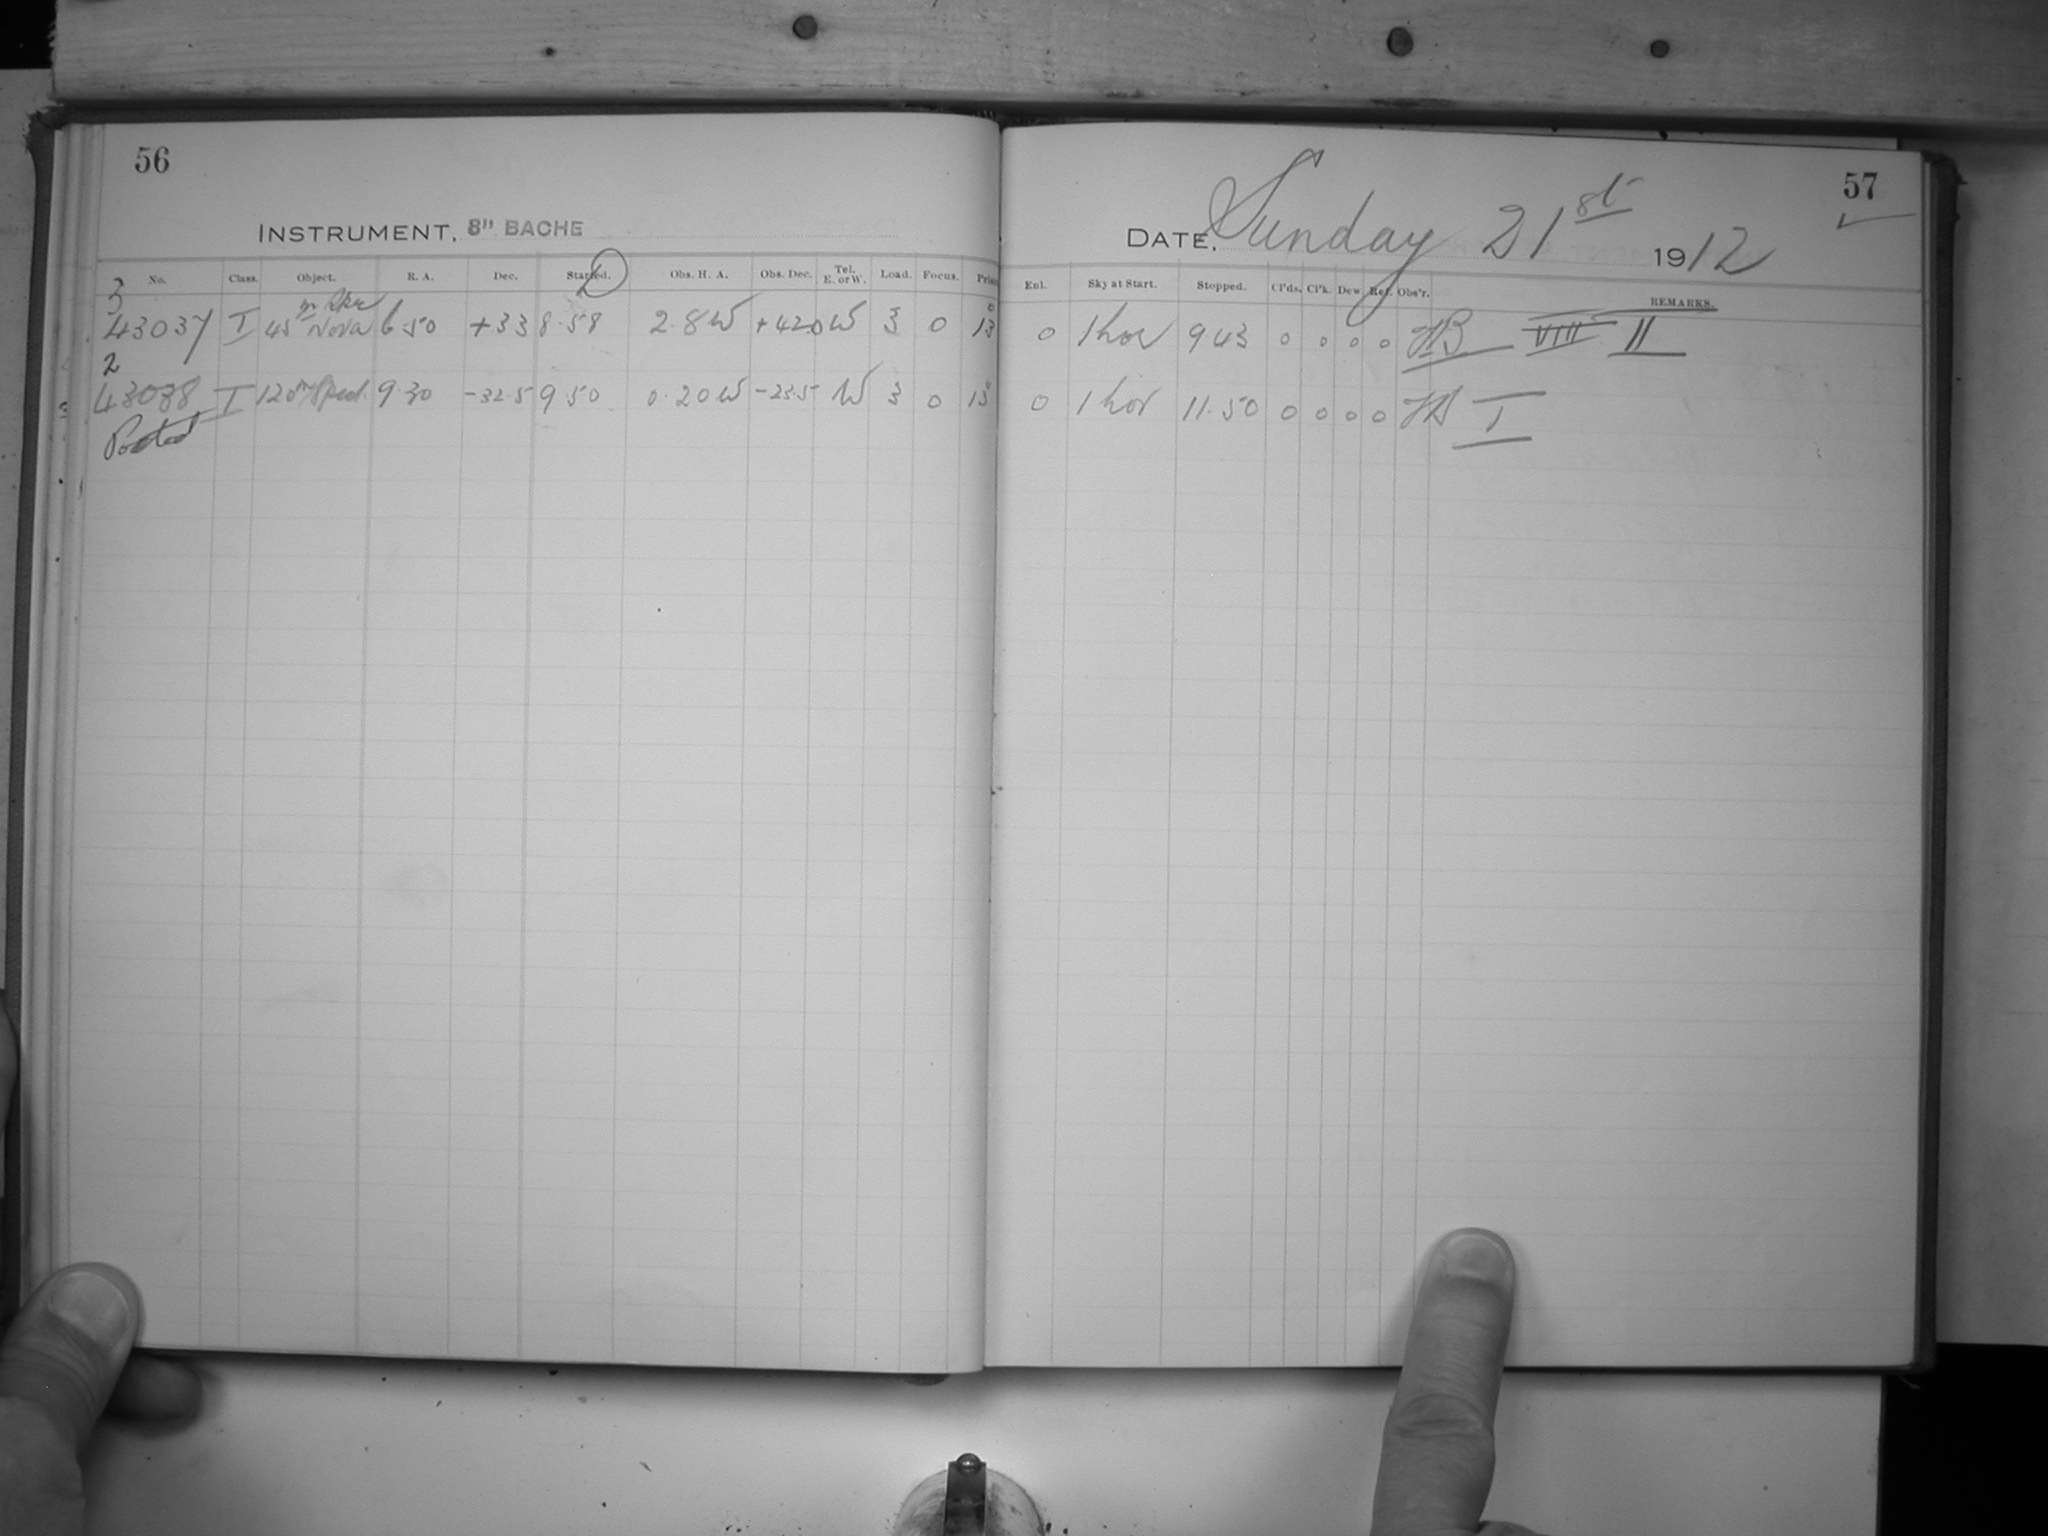 56
INSTRUMENT. 8" BACHE
No. Class. Object. R. A. Dec. Started. Obs. H. A. Obs. Dec. Tel. E. or W. Load. Focus. Prism
3
43037 I 45m Nova 6 50 +33 8.58 2.8 W +42.0 W 3 0 13°
2
43038 I 120m Spect. 9 30 -32.5 9 50 0.20 W -23.5 W 3 0 13°
Posted
57
DATE, Sunday 21st 1912
Enl. Sky at Start. Stopped. Cl'ds. Cl'k. Dew. Ref. Obs'r. REMARKS.
0 1 hor 9 43 0 0 0 0 VIII II
0 1 hor 11.50 0 0 0 0 I